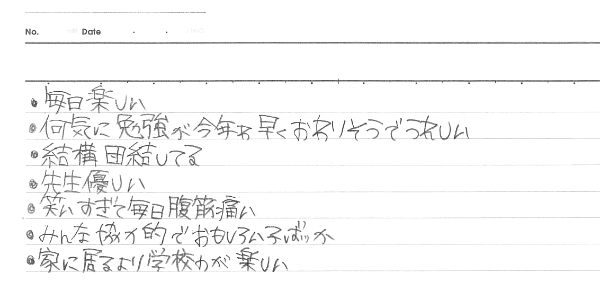 No.　　Date　・　・
・毎日楽しい
・何気に勉強が今年わ早くおわりそうでうれしい
・結構団結してる
・先生優しい
・笑いすぎて毎日腹筋痛い
・みんな協力的でおもしろい子ばっか
・家に居るより学校のが楽しい